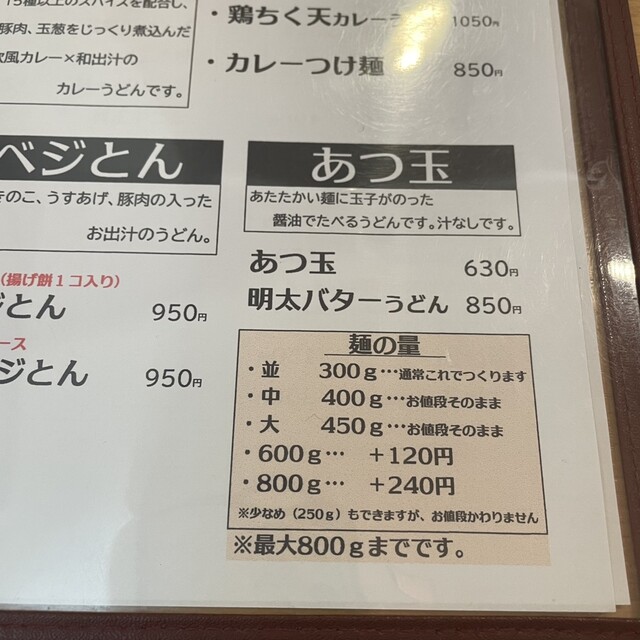 15種以上のスパイスを配合し、
豚肉、玉葱をじっくり煮込んだ
欧風カレー×和出汁の
カレーうどんです。
・鶏ちく天カレー
1050円
・カレーつけ麺 850円
ベジとん
きのこ、うすあげ、豚肉の入った
お出汁のうどん。
(揚げ餅1コ入り)
ジとん 950円
ース
ジとん 950円
あつ玉
あたたかい麺に玉子がのった
醤油でたべるうどんです。汁なしです。
あつ玉 630円
明太バターうどん 850円
麺の量
・並 300g…通常これでつくります
・中 400g…お値段そのまま
・大 450g…お値段そのまま
・600g… +120円
・800g… +240円
※少なめ(250g)もできますが、お値段かわりません
※最大800gまでです。